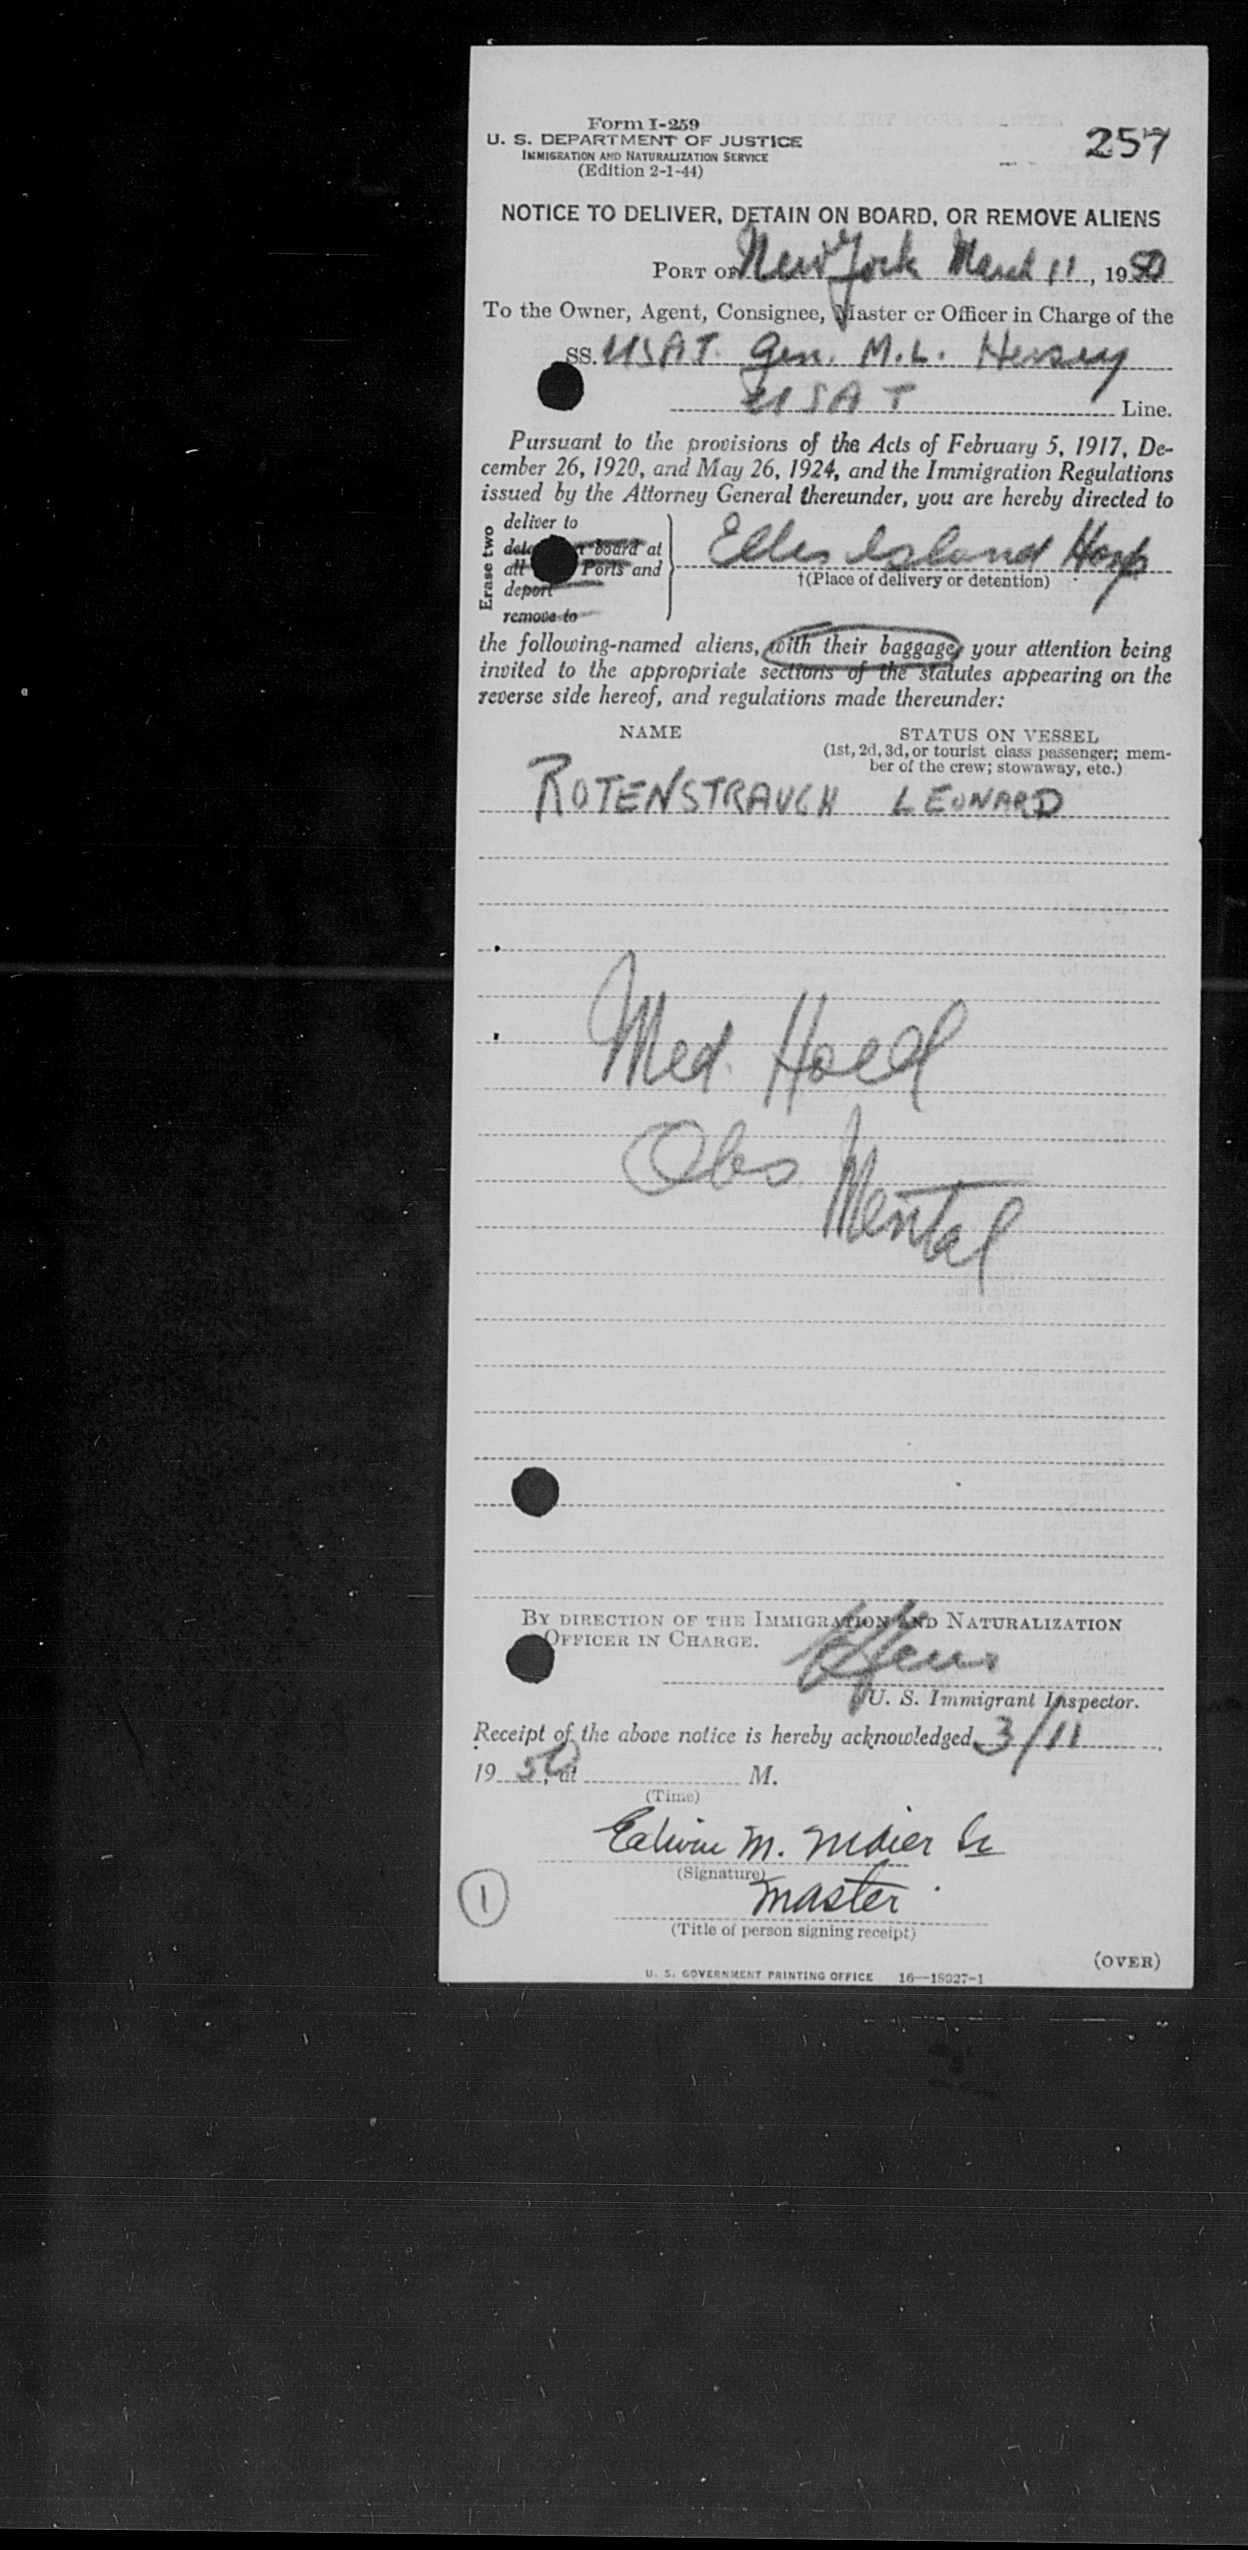 Form I-259
257
U. S. DEPARTMENT OF JUSTICE
IMMIGRATION AND NATURALIZATION SERVICE
(Edition 2-1-44)
NOTICE TO DELIVER, DETAIN ON BOARD, OR REMOVE ALIENS
PORT OF New York March 11, 1950
To the Owner, Agent, Consignee, Master or Officer in Charge of the
SS. USAT. Gen. M.L. Hersey
USAT Line.
Pursuant to the provisions of the Acts of February 5, 1917, De-
cember 26, 1920, and May 26, 1924, and the Immigration Regulations
issued by the Attorney General thereunder, you are hereby directed to
Erase two
deliver to
board at
all Ports and
deport
remove to
Ellis Island Hosp
†(Place of delivery or detention)
the following-named aliens, with their baggage, your attention being
invited to the appropriate sections of the statutes appearing on the
reverse side hereof, and regulations made thereunder:
NAME STATUS ON VESSEL
(1st, 2d, 3d, or tourist class passenger; mem-
ber of the crew; stowaway, etc.)
ROTENSTRAUCH LEONARD
Med. Hold
Obs Mental
BY DIRECTION OF THE IMMIGRATION AND NATURALIZATION
OFFICER IN CHARGE.
U. S. Immigrant Inspector.
Receipt of the above notice is hereby acknowledged 3/11
19 50, at M.
(Time)
Edwin M. Maier
(Signature)
Master
1
(Title of person signing receipt)
(OVER)
U. S. GOVERNMENT PRINTING OFFICE 16—18027-1